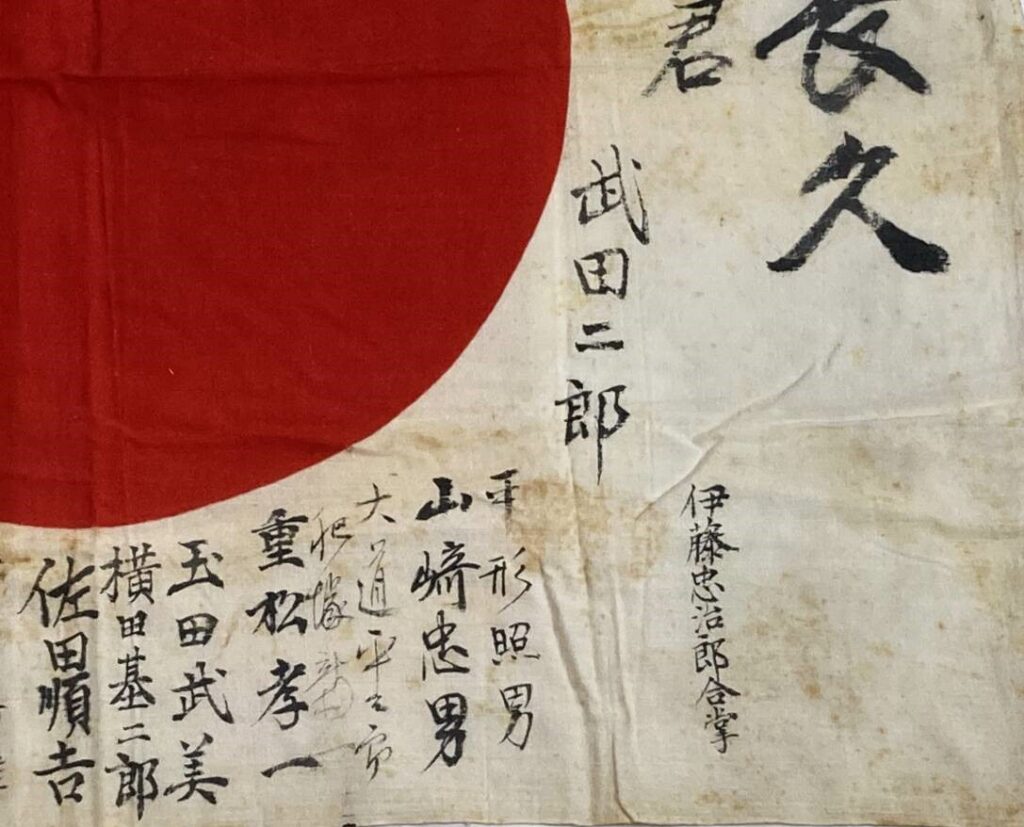 長久
君
伊藤忠治郎合掌
武田二郎
平形照男
山崎忠男
大道平
重松孝一
玉田武美
横田基二郎
佐田順吉